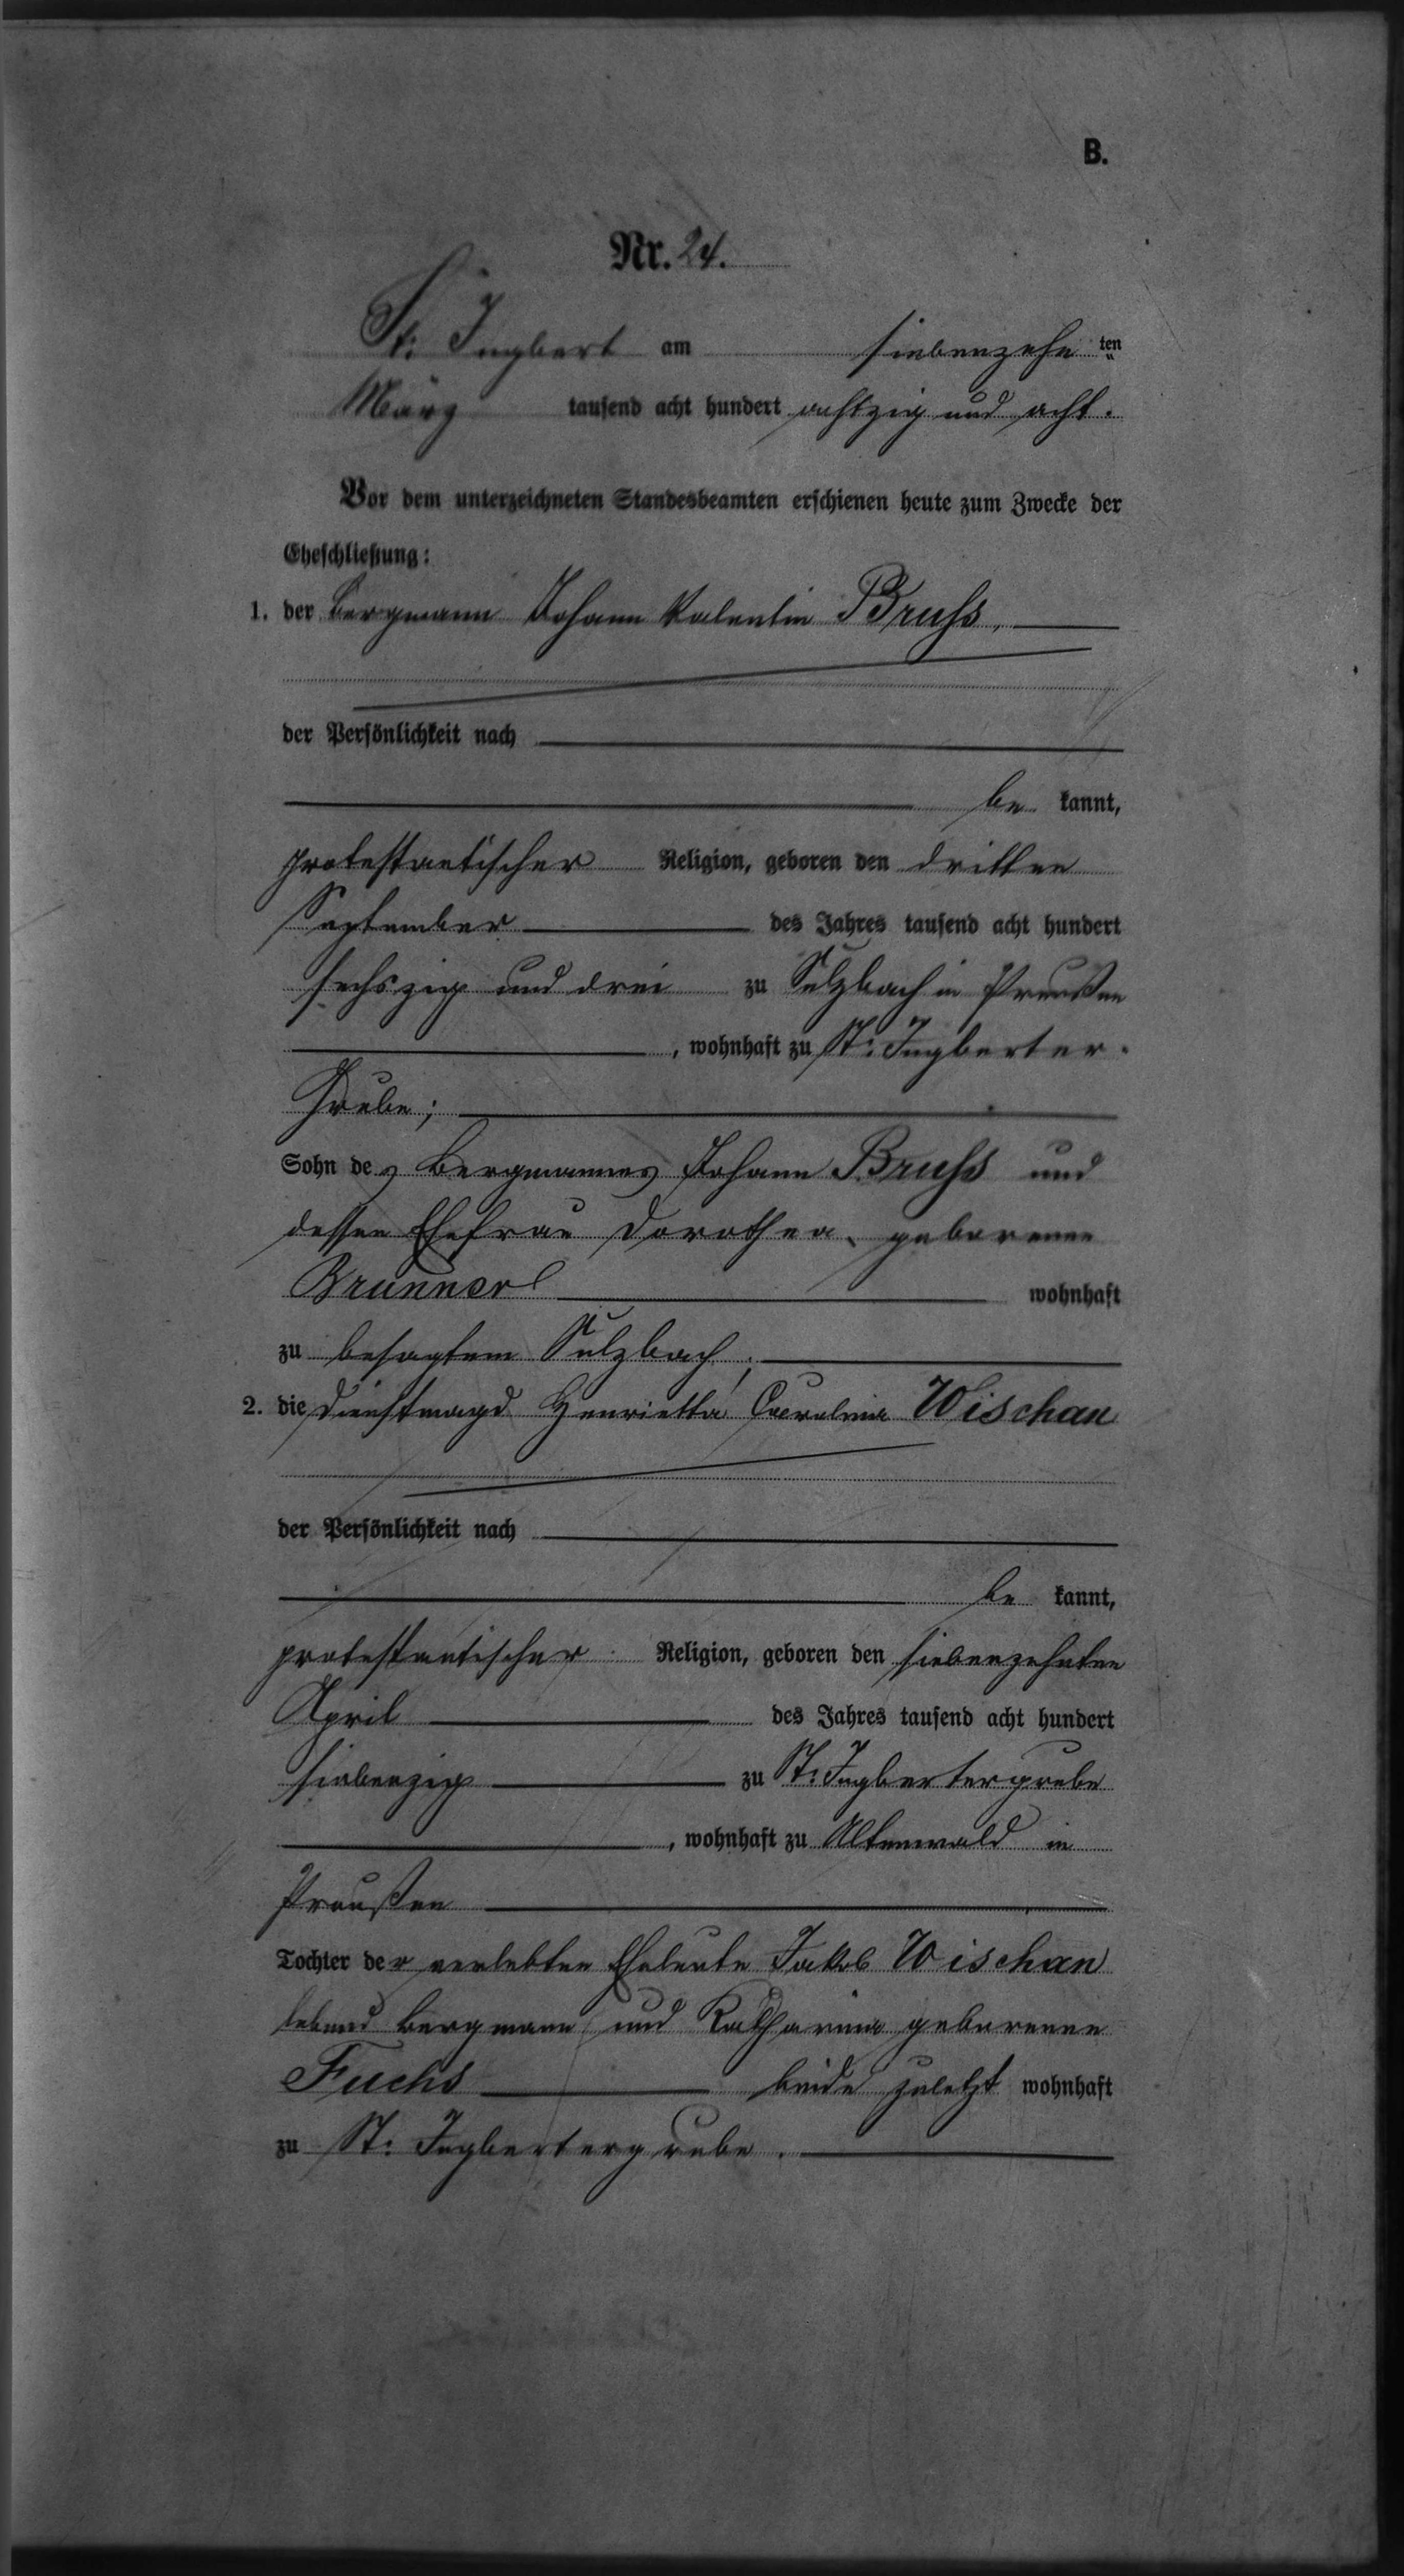 B.
Nr. 24.
St. Ingbert am siebenzehn ten
März tausend acht hundert achtzig und acht.
Vor dem unterzeichneten Standesbeamten erschienen heute zum Zwecke der
Eheschließung:
1. der Bergmann Johann Valentin Bruhs,
der Persönlichkeit nach
be kannt,
protestantischer Religion, geboren den dritten
September des Jahres tausend acht hundert
sechszig und drei zu Sulzbach in Preußen
, wohnhaft zu St. Ingberter-
Grube;
Sohn des Bergmannes Johann Bruhs und
dessen Ehefrau Dorothea, geborenen
Brunner wohnhaft
zu besagtem Sulzbach;
2. die Dienstmagd Henrietta Carolina Wischan
der Persönlichkeit nach
be kannt,
protestantischer Religion, geboren den siebenzehnten
April des Jahres tausend acht hundert
siebenzig zu St. Ingbertergrube
, wohnhaft zu Altenwald in
Preußen
Tochter der verlebten Eheleute Jakob Wischan
lebend Bergmann und Katharina geborenen
Fuchs beide zuletzt wohnhaft
zu St. Ingbertergrube.